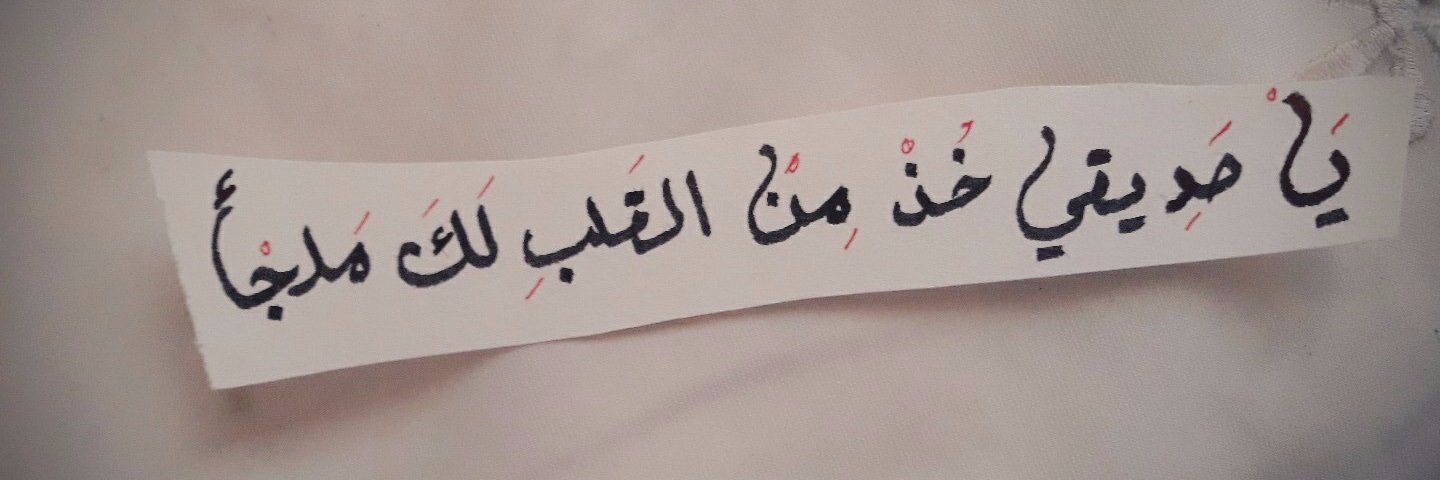 يَاْ صَدِيقي خُذْ مِنْ القَلبِ لَكَ مَلجْأ